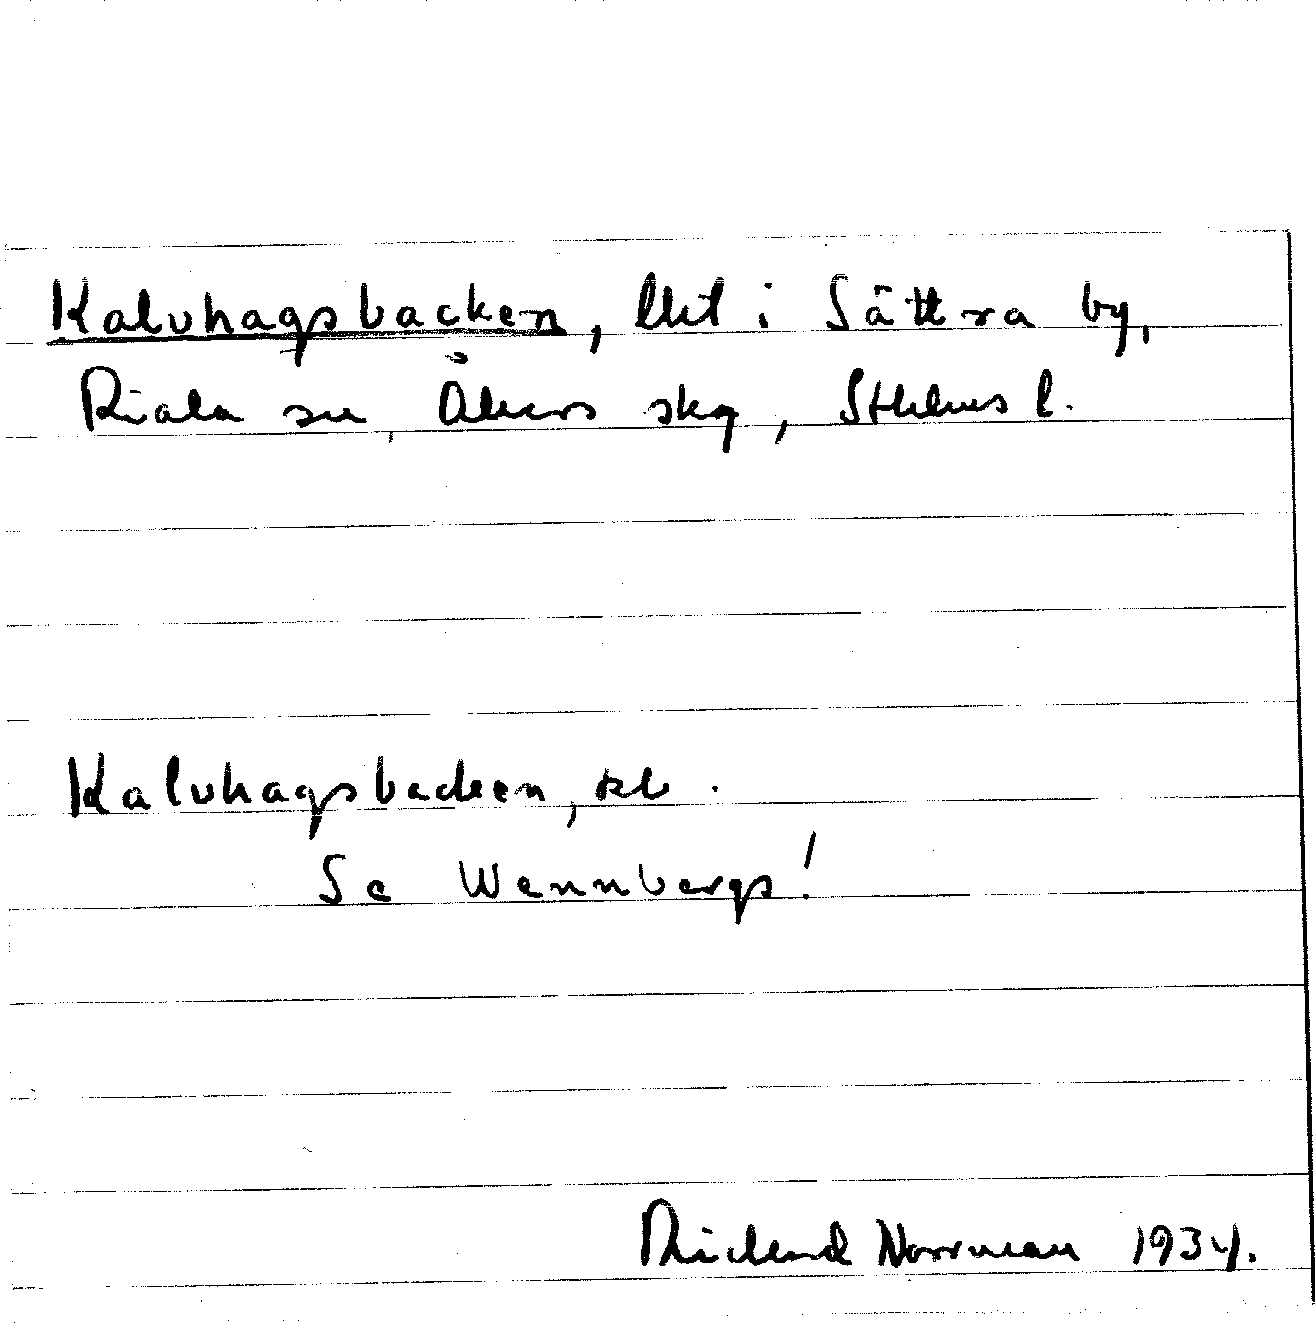 Kalvhagsbacken, lht i Sättra by,
Riala sn, Åkers skg, Sthlms l.
Kalvhagsbacken, se
Se Wennbergs!
Richard Norrman 1934.